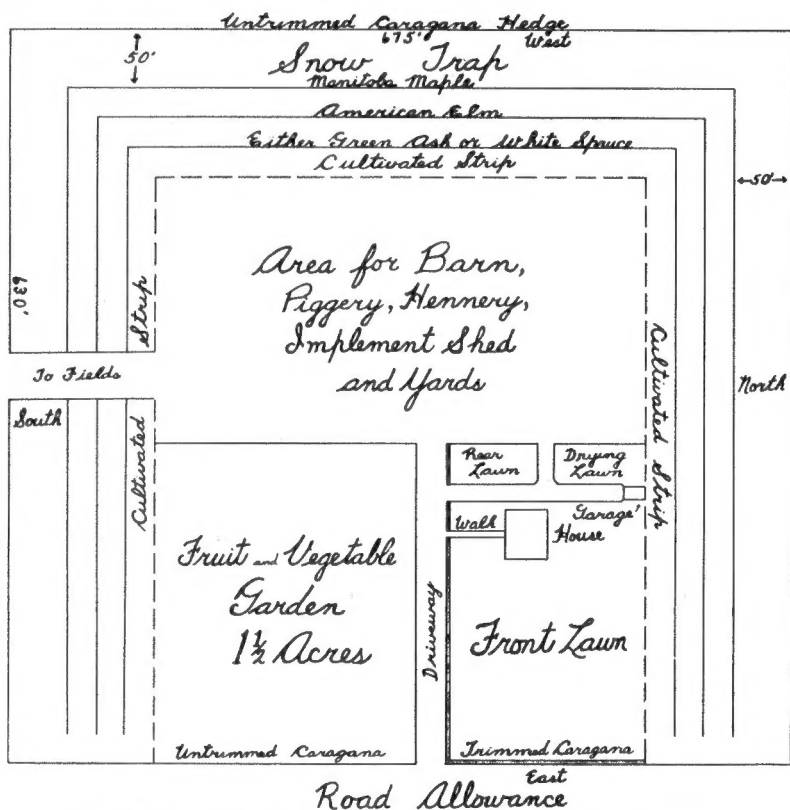 Untrimmed Caragana Hedge
675'
West
50'
Snow Trap
Manitoba Maple
American Elm
Either Green Ash or White Spruce
Cultivated Strip
50'
630'
Area for Barn,
Piggery, Hennery,
Implement Shed
and Yards
Strip
Cultivated Strip
To Fields
North
South
Cultivated
Rear
Lawn
Drying
Lawn
Garage
Walk
House
Fruit and Vegetable
Garden
1½ Acres
Driveway
Front Lawn
Untrimmed Caragana
Trimmed Caragana
East
Road Allowance